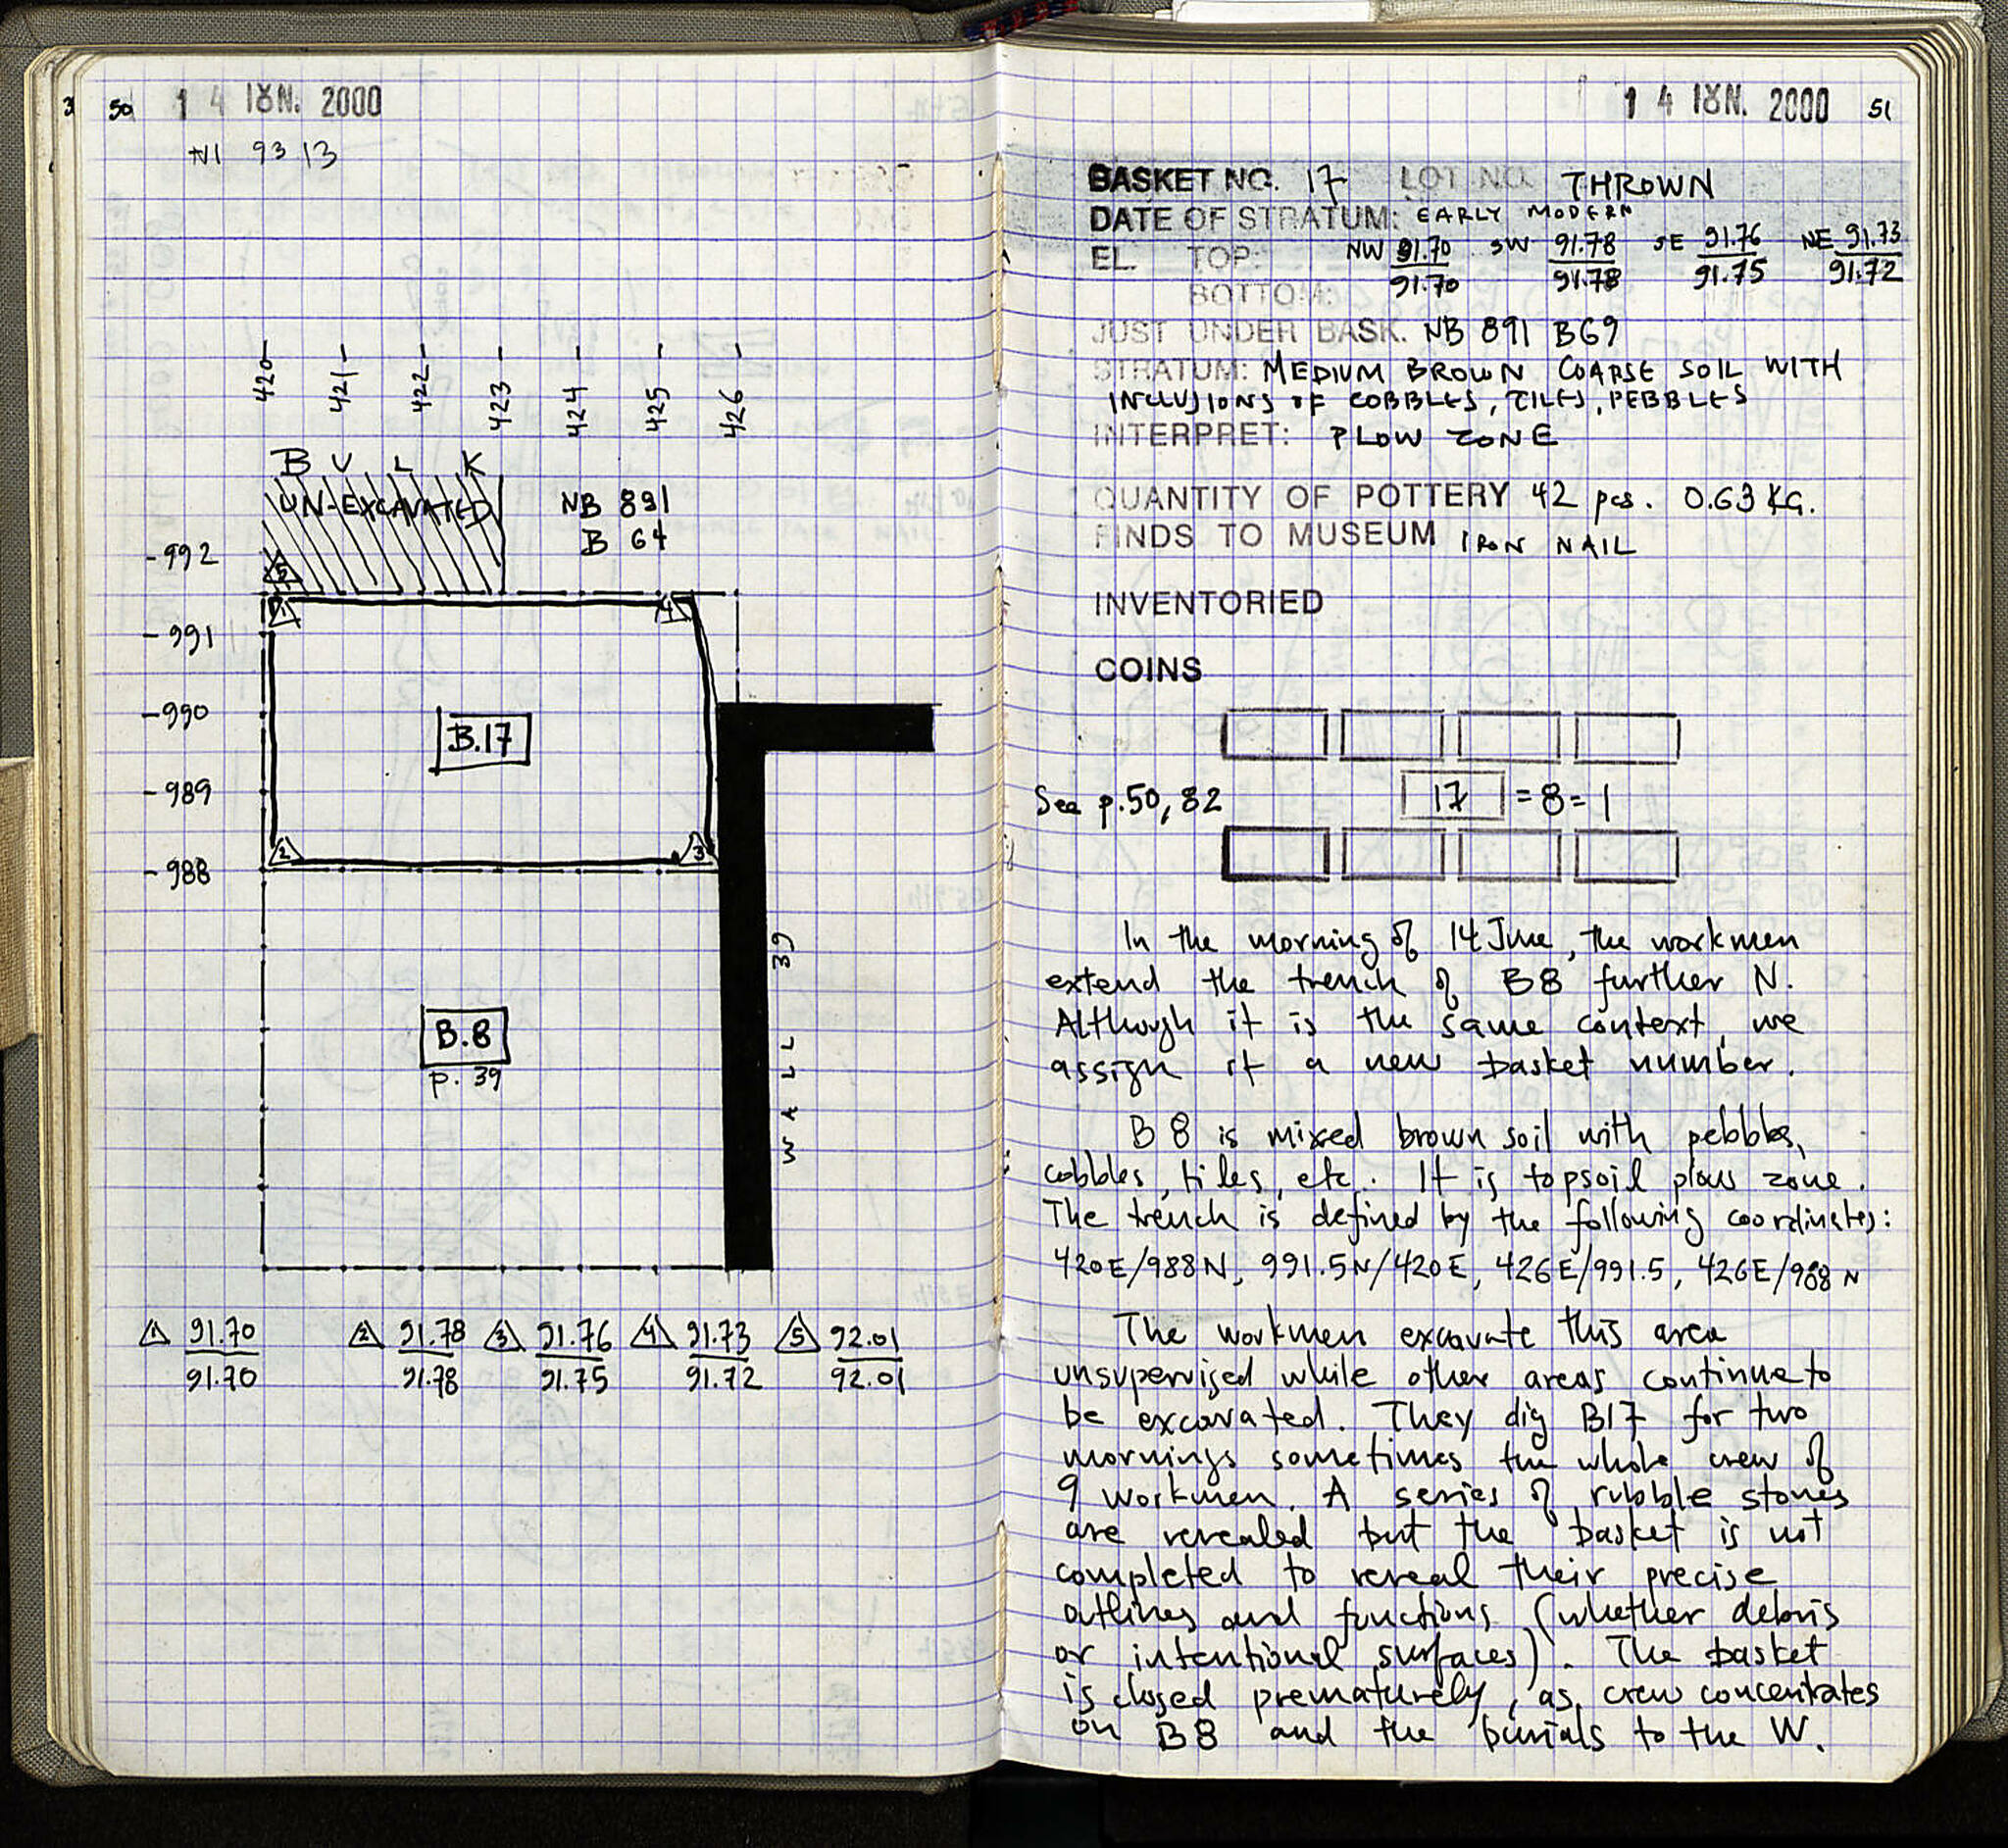 50
1 4 ΙȣΝ. 2000
NI 93 13
420
421
422
423
424
425
426
BULK
UN-EXCAVATED
NB 891
B 64
-992
-991
-990
-989
-988
5
1
4
2
3
B.17
B.8
p. 39
WALL 39
1 91.70 2 91.78 3 91.76 4 91.73 5 92.01
91.70 91.78 91.75 91.72 92.01
1 4 ΙȣΝ. 2000
51
BASKET NO. 17 LOT NO. THROWN
DATE OF STRATUM: EARLY MODERN
EL. TOP: NW 91.70 SW 91.78 SE 91.76 NE 91.73
BOTTOM: 91.70 91.78 91.75 91.72
JUST UNDER BASK. NB 891 B69
STRATUM: MEDIUM BROWN COARSE SOIL WITH
INCLUSIONS OF COBBLES, TILES, PEBBLES
INTERPRET: PLOW ZONE
QUANTITY OF POTTERY 42 pcs. 0.63 KG.
FINDS TO MUSEUM IRON NAIL
INVENTORIED
COINS
See p.50, 82 17 = 8 = 1
In the morning of 14 June, the workmen
extend the trench of B8 further N.
Although it is the same context, we
assign it a new basket number.
B 8 is mixed brown soil with pebbles,
cobbles, tiles, etc. It is topsoil plow zone.
The trench is defined by the following coordinates:
420E/988N, 991.5N/420E, 426E/991.5, 426E/988N
The workmen excavate this area
unsupervised while other areas continue to
be excavated. They dig B17 for two
mornings sometimes the whole crew of
9 workmen. A series of rubble stones
are revealed but the basket is not
completed to reveal their precise
outlines and functions (whether debris
or intentional surfaces). The basket
is closed prematurely, as crew concentrates
on B8 and the burials to the W.